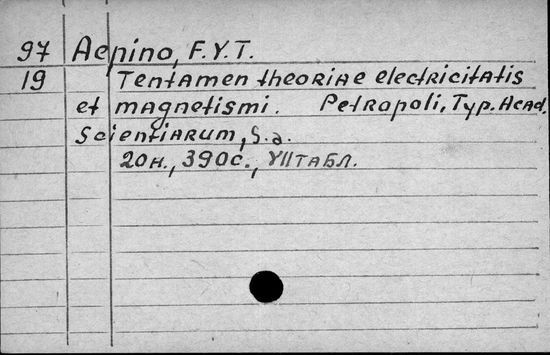 97 Aepino, F.Y.T.
19 Tentamen theoriae electricitatis
et magnetismi. Petropoli, Typ. Acad.
Scientiarum, S.a.
20н., 390с., VII табл.